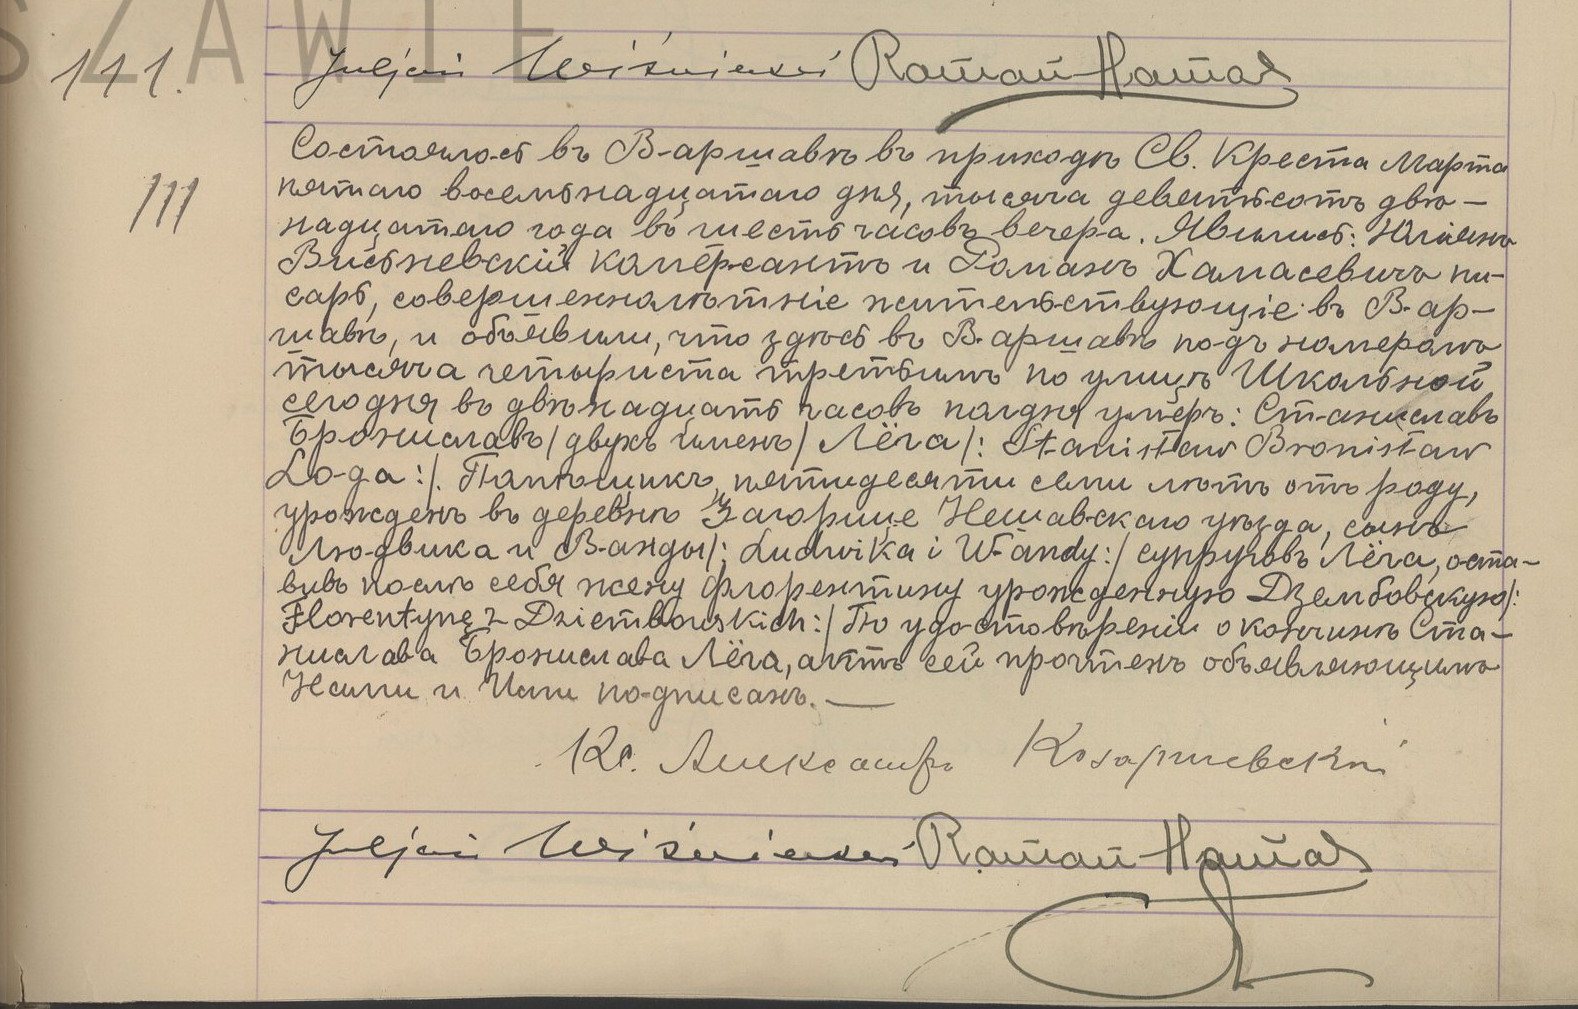 SZAWIE
141.
Juljan Wiśniewski Roman Hamas
111
Состоялось въ Варшавѣ въ приходѣ Св. Креста Марта
пятаго восемьнадцатаго дня, тысяча девятьсотъ двѣ-
надцатаго года въ шесть часовъ вечера. Явились: Юліянъ
Висьневскій комерсантъ и Романъ Хамасевичъ пи-
сарь, совершеннолѣтніе жительствующіе въ Вар-
шавѣ, и объявили, что здѣсь въ Варшавѣ подъ номеромъ
тысяча четыриста третьимъ по улицѣ Школьной
сегодня въ двѣнадцать часовъ полдня умеръ: Станиславъ
Брониславъ/двухъ именъ/ Лёга/: Stanisław Bronisław
Loga:/. Помѣщикъ, пятидесяти семи лѣтъ отъ роду,
урожденъ въ деревнѣ Загорице Нешавскаго уѣзда, сынъ
Людвика и Ванды/: Ludwika i Wandy:/ супруговъ Лёга, оста-
вивъ послѣ себя жену Флорентину урожденную Дзембовскую/:
Florentynę z Dziembowskich:/ По удостовѣреніи о кончинѣ Ста-
нислава Бронислава Лёга, актъ сей прочтенъ объявляющимъ
Нами и Ими подписанъ.—
Кс. Александръ
Juljan Wiśniewski Roman Hamas